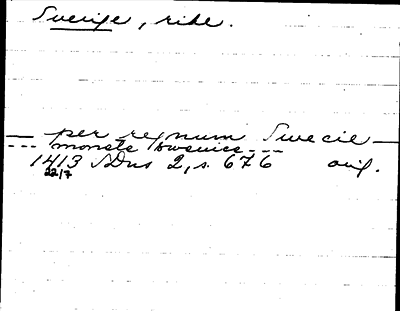 Sverige, rike.
— per regnum Swecie —
--- monete swevice ---
1413 SDns 2, s. 676 orig.
22/7